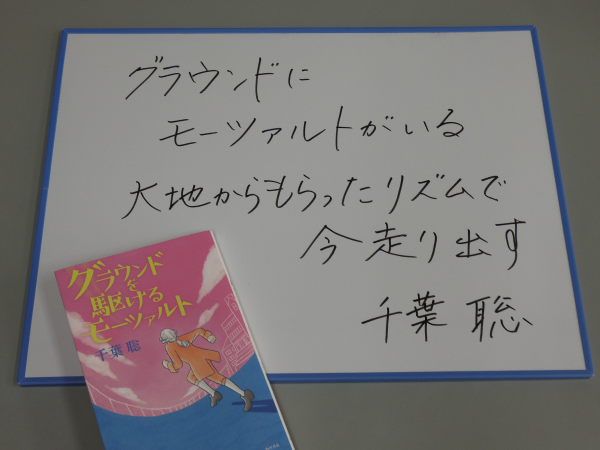 グラウンドに
モーツァルトがいる
大地からもらったリズムで
今走り出す
千葉 聡
グラウンド
を
駆ける
モーツァルト
千葉 聡